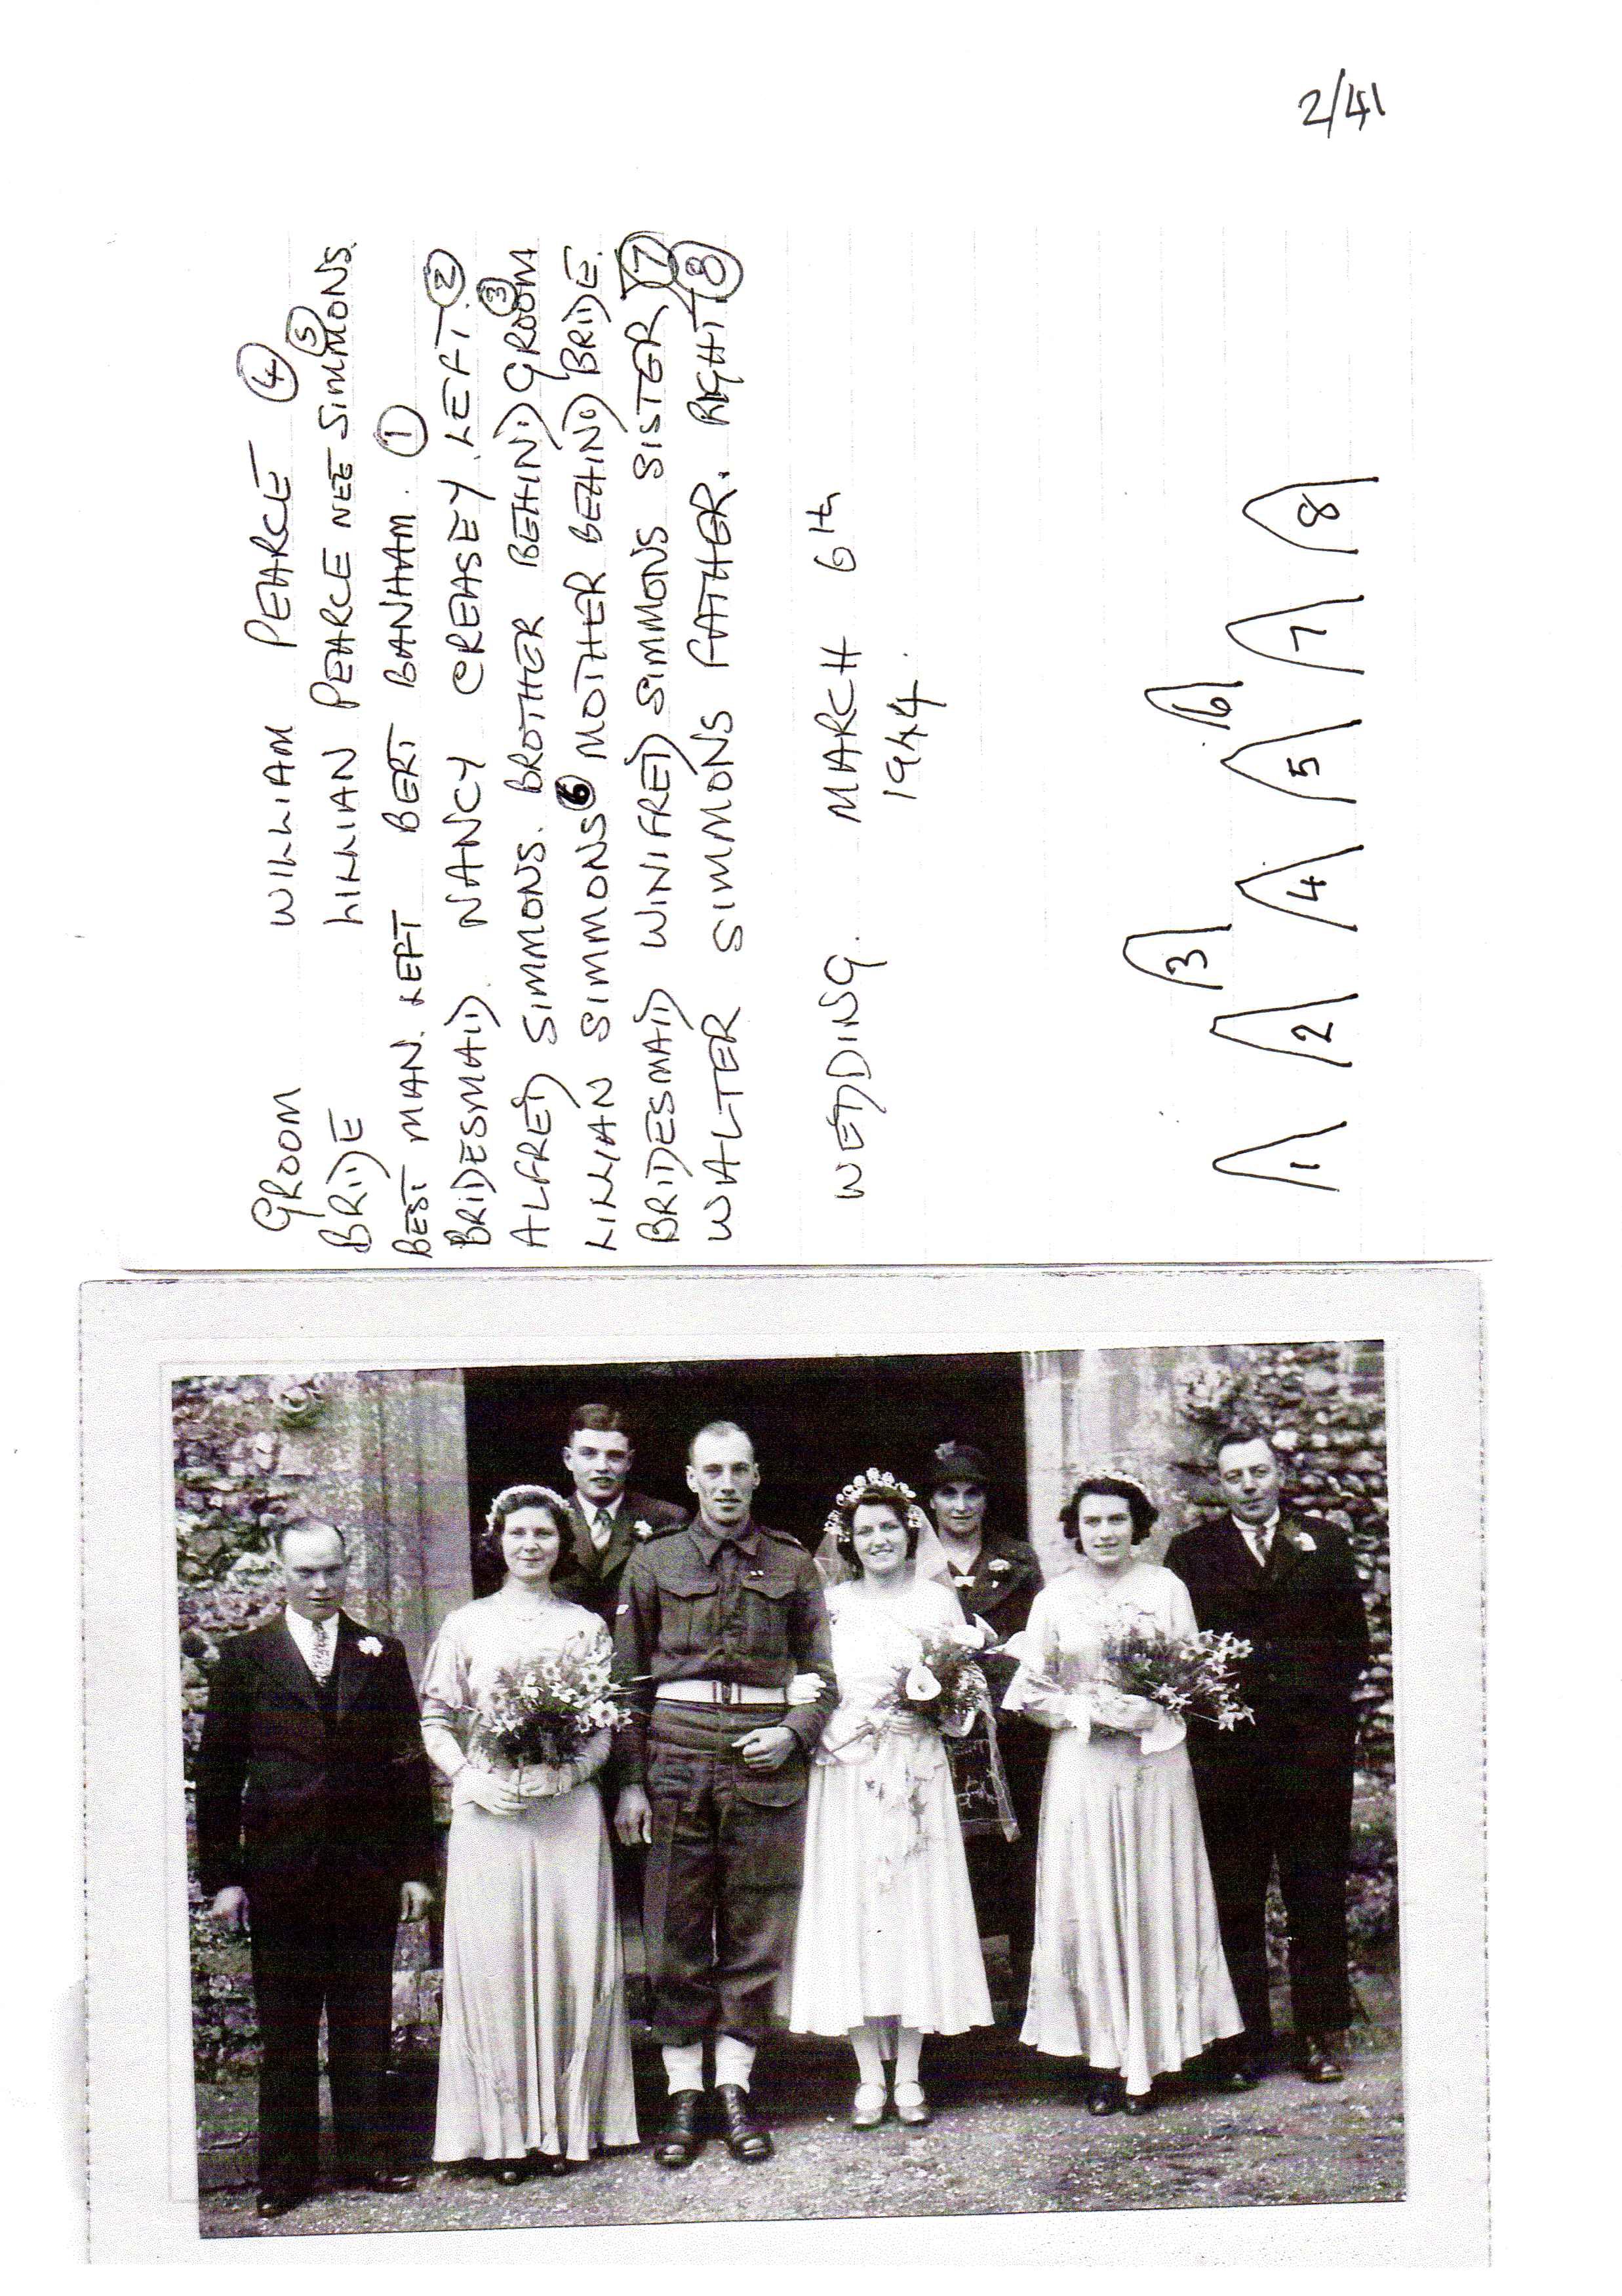 2/41
GROOM WILLIAM PEARCE ④
BRIDE LILLIAN PEARCE NEE SIMMONS ⑤
BEST MAN. LEFT BERT BANHAM. ①
BRIDESMAID. NANCY CREASEY. LEFT. ②
ALFRED SIMMONS. BROTHER BEHIND GROOM ③
LILLIAN SIMMONS ⑥ MOTHER BEHIND BRIDE.
BRIDESMAID WINIFRED SIMMONS SISTER ⑦
WALTER SIMMONS FATHER. RIGHT. ⑧
WEDDING. MARCH 6th
1944.
3 6
1 2 4 5 7 8